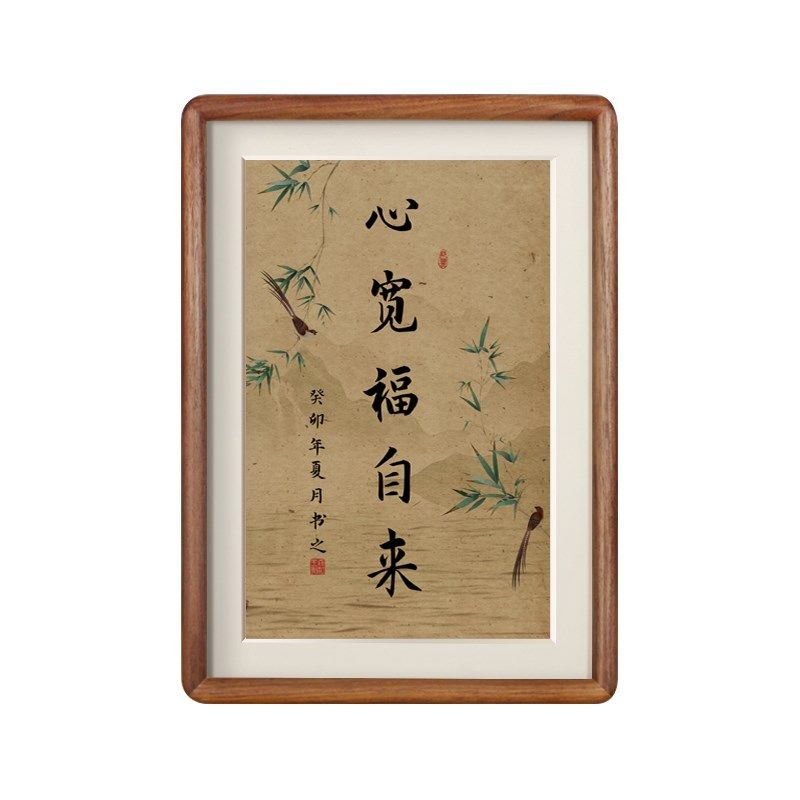 心宽福自来
癸卯年夏月书之